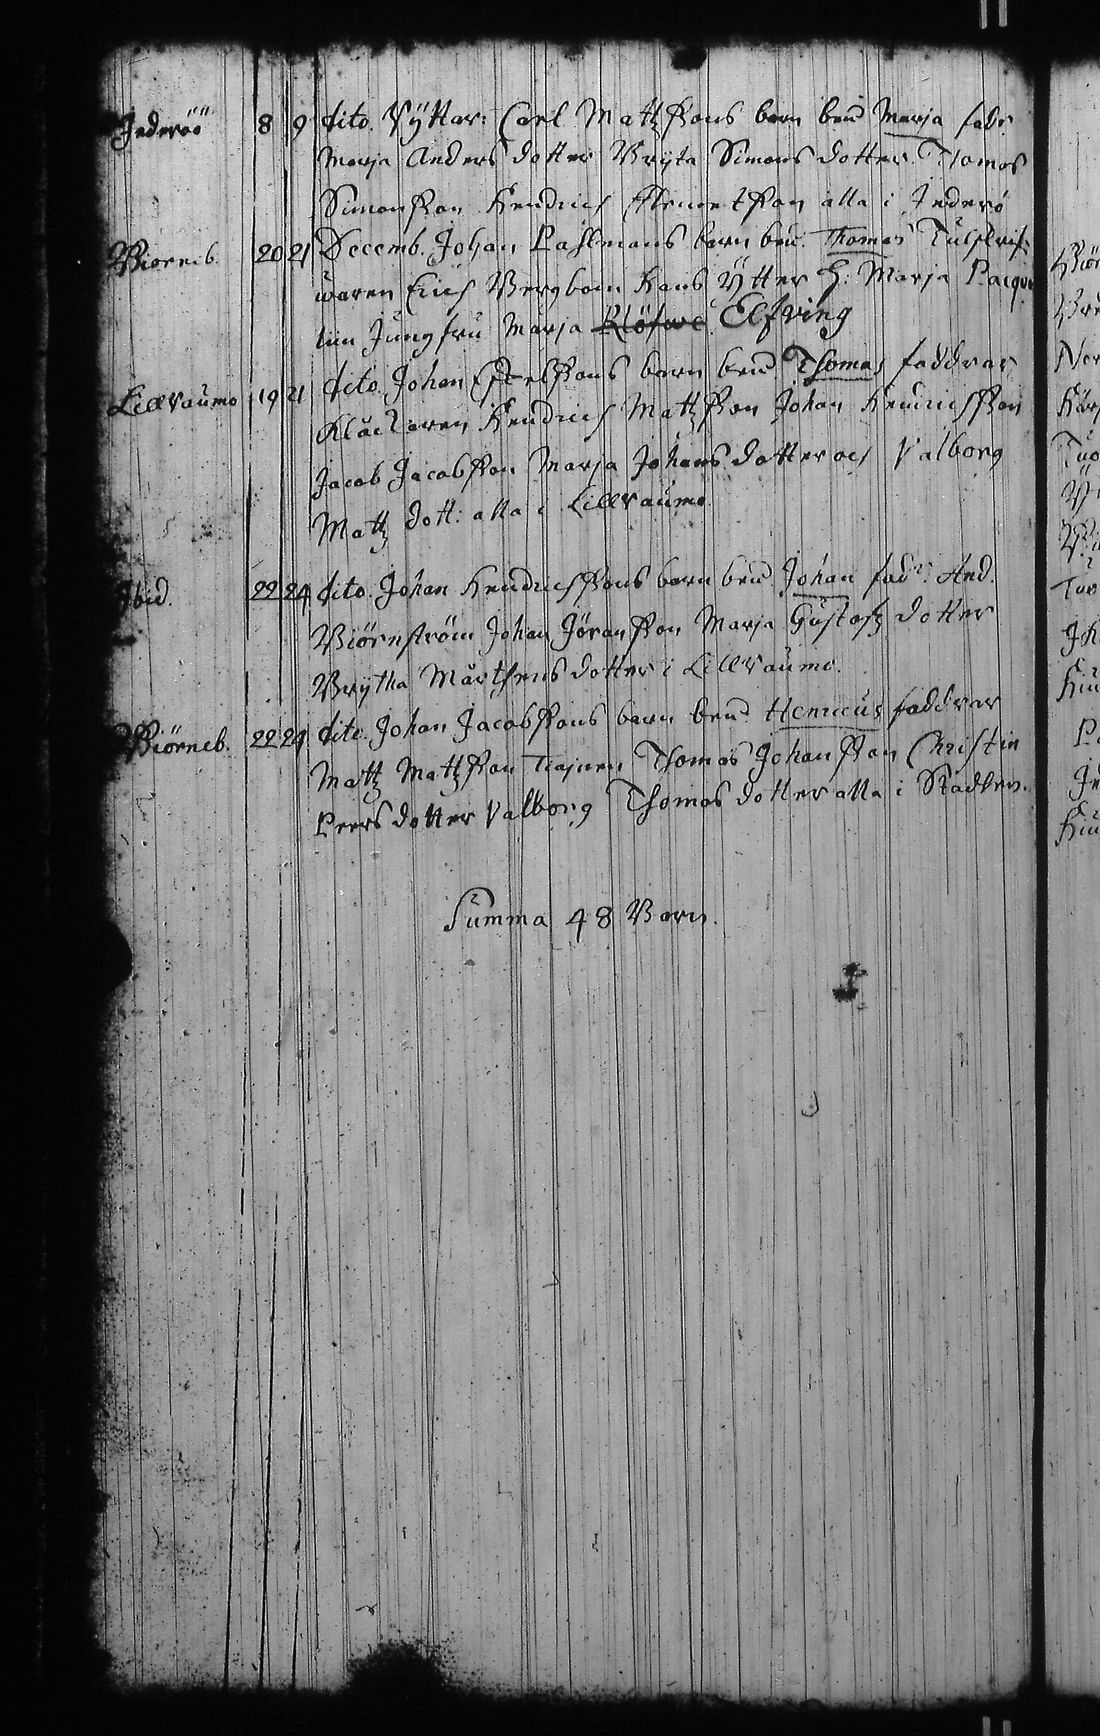 Inderöö 8 9 dito. Ryttar: Carl Mattzsons barn bend Marja fadr
Marja Anders dotter Brijta Simons dotter Thomos
Simonsson Hendrich Clemetsson alla i Inderö
Biörneb. 20 21 Decemb. Johan Pahlmans barn ben. Thomas Tulskrif-
waren Erich Bergbom Hans Ytter H: Marja Pacqva
lin Jungfru Marja Klöfwe Elfving
Lillraumo 19 21 dito. Johan Eskelssons barn bend Thomas faddrar
Klåckaren Hendrich Mattzson Johan Hendrichsson
Jacob Jacobsson Marja Johans dotter och Valborg
Mattz dott: alla i Lillraumo
Ibid. 22 24 dito. Johan Hendrichssons barn bend. Johan fadr. And.
Biörnström Johan Jöransson Marja Gustafz dotter
Brijtha Mårthens dotter i Lillraumo.
Biörneb. 22 24 dito. Johan Jacobssons barn bend Henricus faddrar
Mattz Mattzson Thomas Johansson Christin
Peers dotter Valborg Thomos dotter alla i Staden.
Summa 48 Barn.